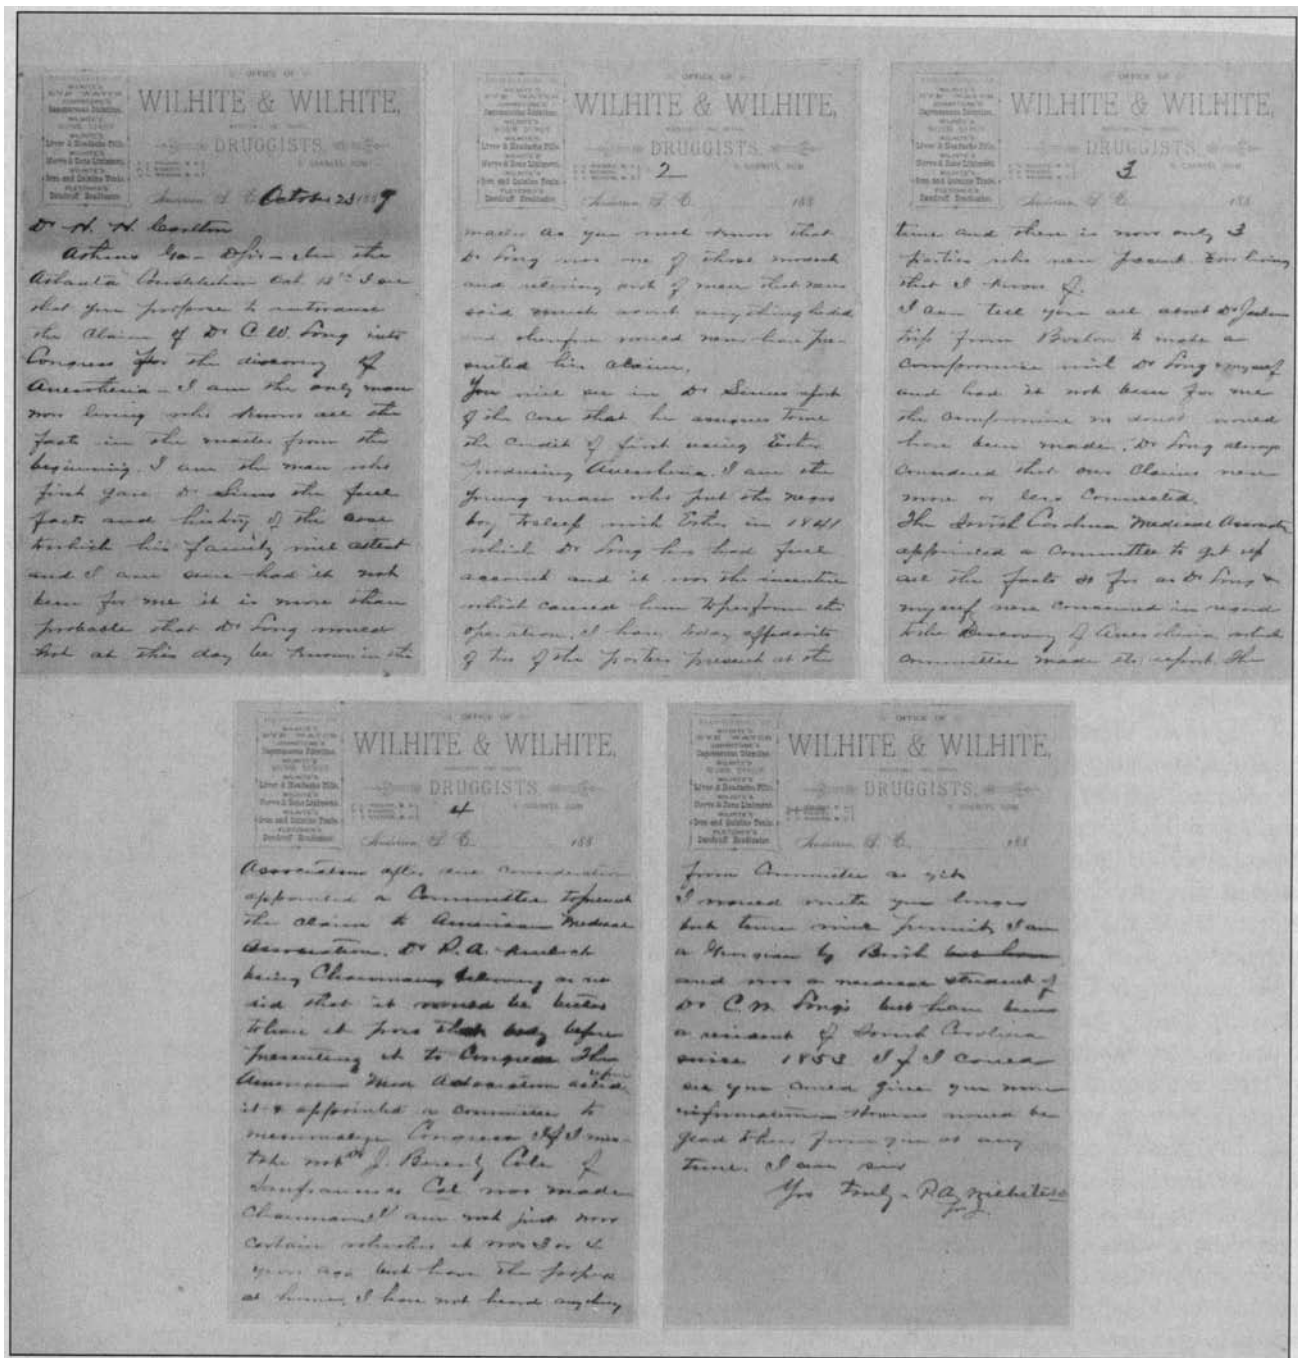 OFFICE OF
WILHITE & WILHITE,
DRUGGISTS.
EYE WATER
Liver & Headache Pills.
WILHITE'S
Nerve & Bone Liniment.
WILHITE'S
Iron and Quinine Tonic.
FLETCHER'S
Dandruff Eradicator.
Anderson S. C. October 23 1889
Dr H. H. Carlton
Athens Ga - DSir - In the
Atlanta Constitution Oct I see
that you propose to introduce
the claim of Dr C. W. Long into
Congress for the discovery of
Anaesthesia - I am the only man
now living who knows all the
facts in the matter from the
beginning. I am the man who
first gave Dr Sims the full
facts and history of the case
to which his family will attest
and I am sure had it not
been for me it is more than
probable that Dr Long would
not at this day be known in the
OFFICE OF
WILHITE & WILHITE,
DRUGGISTS.
2
Anderson S. C. 188
matter As you well know that
Dr Long was one of those modest
and retiring sort of men that never
said much about anything he did
and therefore would never have pre-
sented his claim.
You will see in Dr Sims
of the case that he assigns to me
the credit of first using Ether
producing Anaesthesia. I am the
young man who put the negro
boy to sleep with Ether in 1841
which Dr Long has had full
account and it was the incentive
which caused him to perform the
operation. I have today affidavits
of two of the parties present at the
OFFICE OF
WILHITE & WILHITE,
DRUGGISTS.
3
Anderson S. C. 188
time and there is now only 3
parties who were present now living
that I know of.
I can tell you all about Dr Jackson
trip from Boston to make a
compromise with Dr Long & myself
and had it not been for me
the compromise no doubt would
have been made. Dr Long always
considered that our claims were
more or less connected.
The South Carolina Medical Association
appointed a Committee to get up
all the facts so far as Dr Long &
myself were concerned in regard
to the Discovery of Anaesthesia which
committee made its report. The
OFFICE OF
WILHITE & WILHITE,
DRUGGISTS.
4
Anderson S. C. 188
Association after due consideration
appointed a Committee to present
the claim to American Medical
Association. Dr R. A. Kinloch
being Chairman believing as we
did that it would be better
to have it pass that body before
presenting it to Congress The
American Med Association acted upon
it & appointed a committee to
memorialize Congress If I mis-
take not Dr J. Cole of
Sanfrancisco Cal was made
Chairman I am not just now
certain whether it was 3 or 4
years ago but have the papers
at home. I have not heard anything
OFFICE OF
WILHITE & WILHITE,
DRUGGISTS.
Anderson S. C. 188
from Committee as yet
I would write you longer
but time will permit, I am
a Georgian by Birth
and was a medical student of
Dr C. W. Long's but have been
a resident of South Carolina
since 1853 If I could
see you could give you more
information would be
glad to hear from you at any
time. I am sir
Yrs truly - P. A. Wilhite